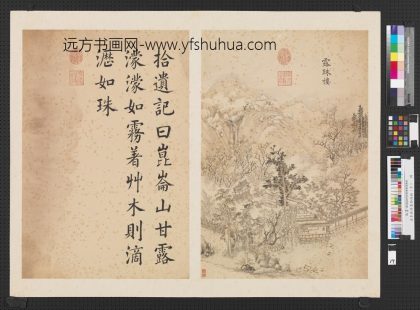 远方书画网-www.yfshuhua.com
露珠樓
拾遺記曰崑崙山甘露
濛濛如霧着艸木則滴
瀝如珠